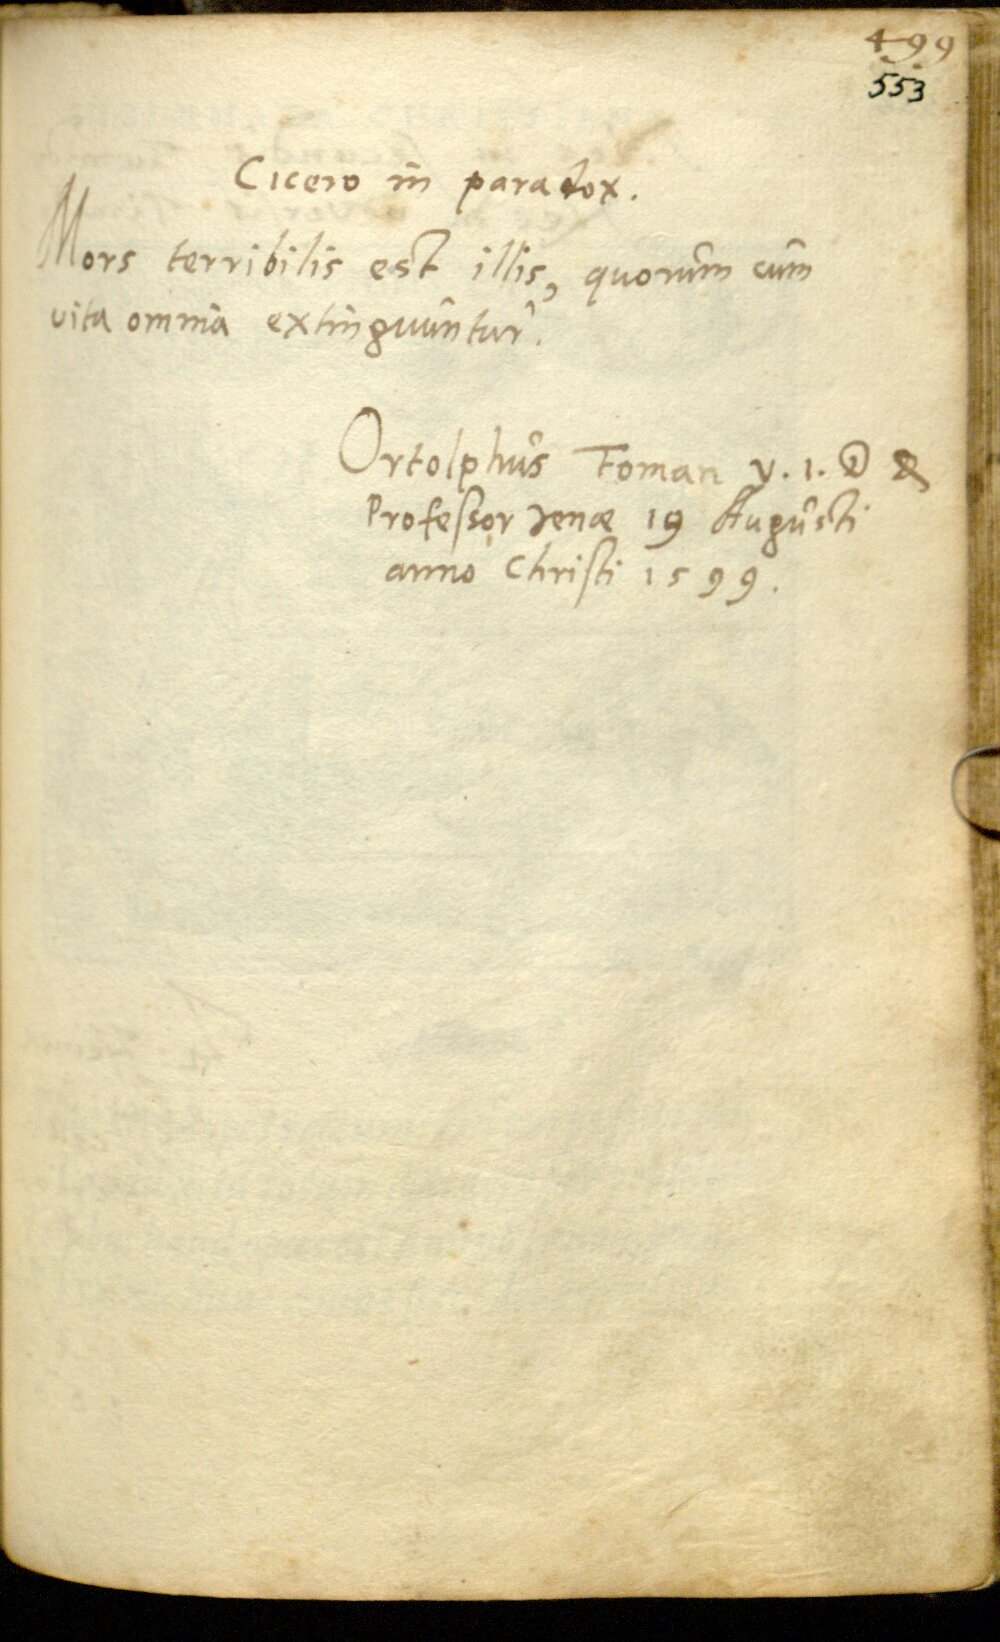 499
553
Cicero in paradox.
Mors terribilis est illis, quorum cum
vita omnia extinguuntur.
Ortolphus Foman V. I. D &
Professor Jenæ 19 Augusti
anno Christi 1599.